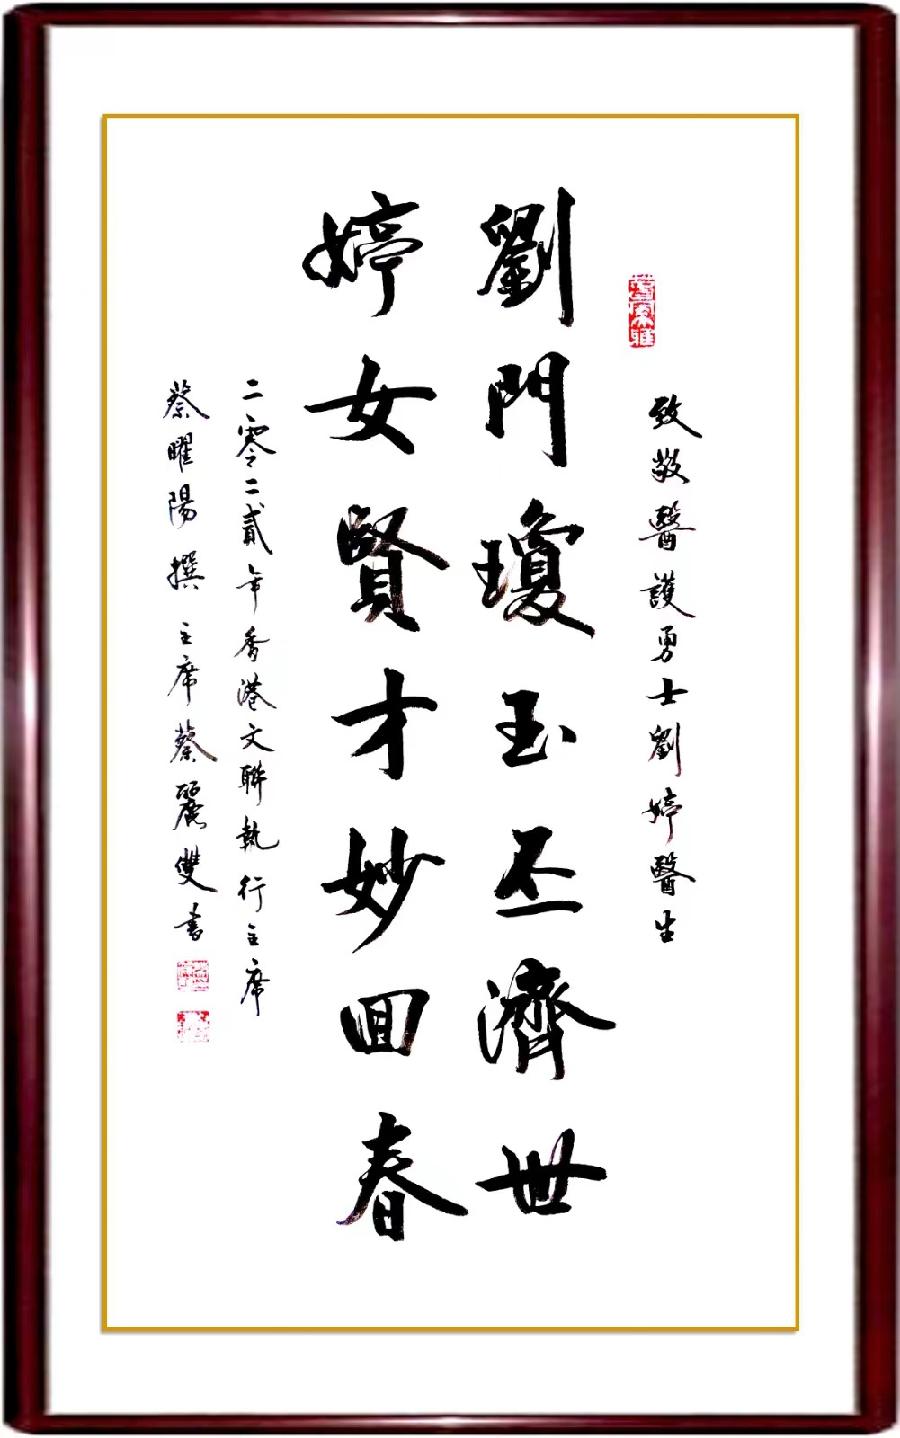 致敬醫護勇士劉婷醫生
劉門瓊玉丕濟世
婷女賢才妙回春
二零二貳年香港文聯執行主席
蔡曜陽撰 主席蔡麗雙書